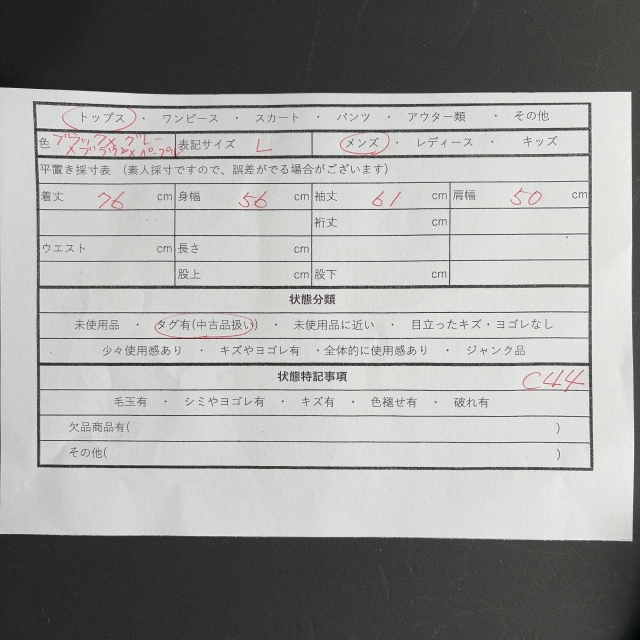 トップス ・ ワンピース ・ スカート ・ パンツ ・ アウター類 ・ その他
色 ブラック×グレー×ブラウン×パープル 表記サイズ L メンズ ・ レディース ・ キッズ
平置き採寸表 (素人採寸ですので、誤差がでる場合がございます)
着丈 76 cm 身幅 56 cm 袖丈 61 cm 肩幅 50 cm
裄丈 cm
ウエスト cm 長さ cm
股上 cm 股下 cm
状態分類
未使用品 ・ タグ有(中古品扱い) ・ 未使用品に近い ・ 目立ったキズ・ヨゴレなし
少々使用感あり ・ キズやヨゴレ有 ・全体的に使用感あり ・ ジャンク品
状態特記事項 C44
毛玉有 ・ シミやヨゴレ有 ・ キズ有 ・ 色褪せ有 ・ 破れ有
欠品商品有( )
その他( )